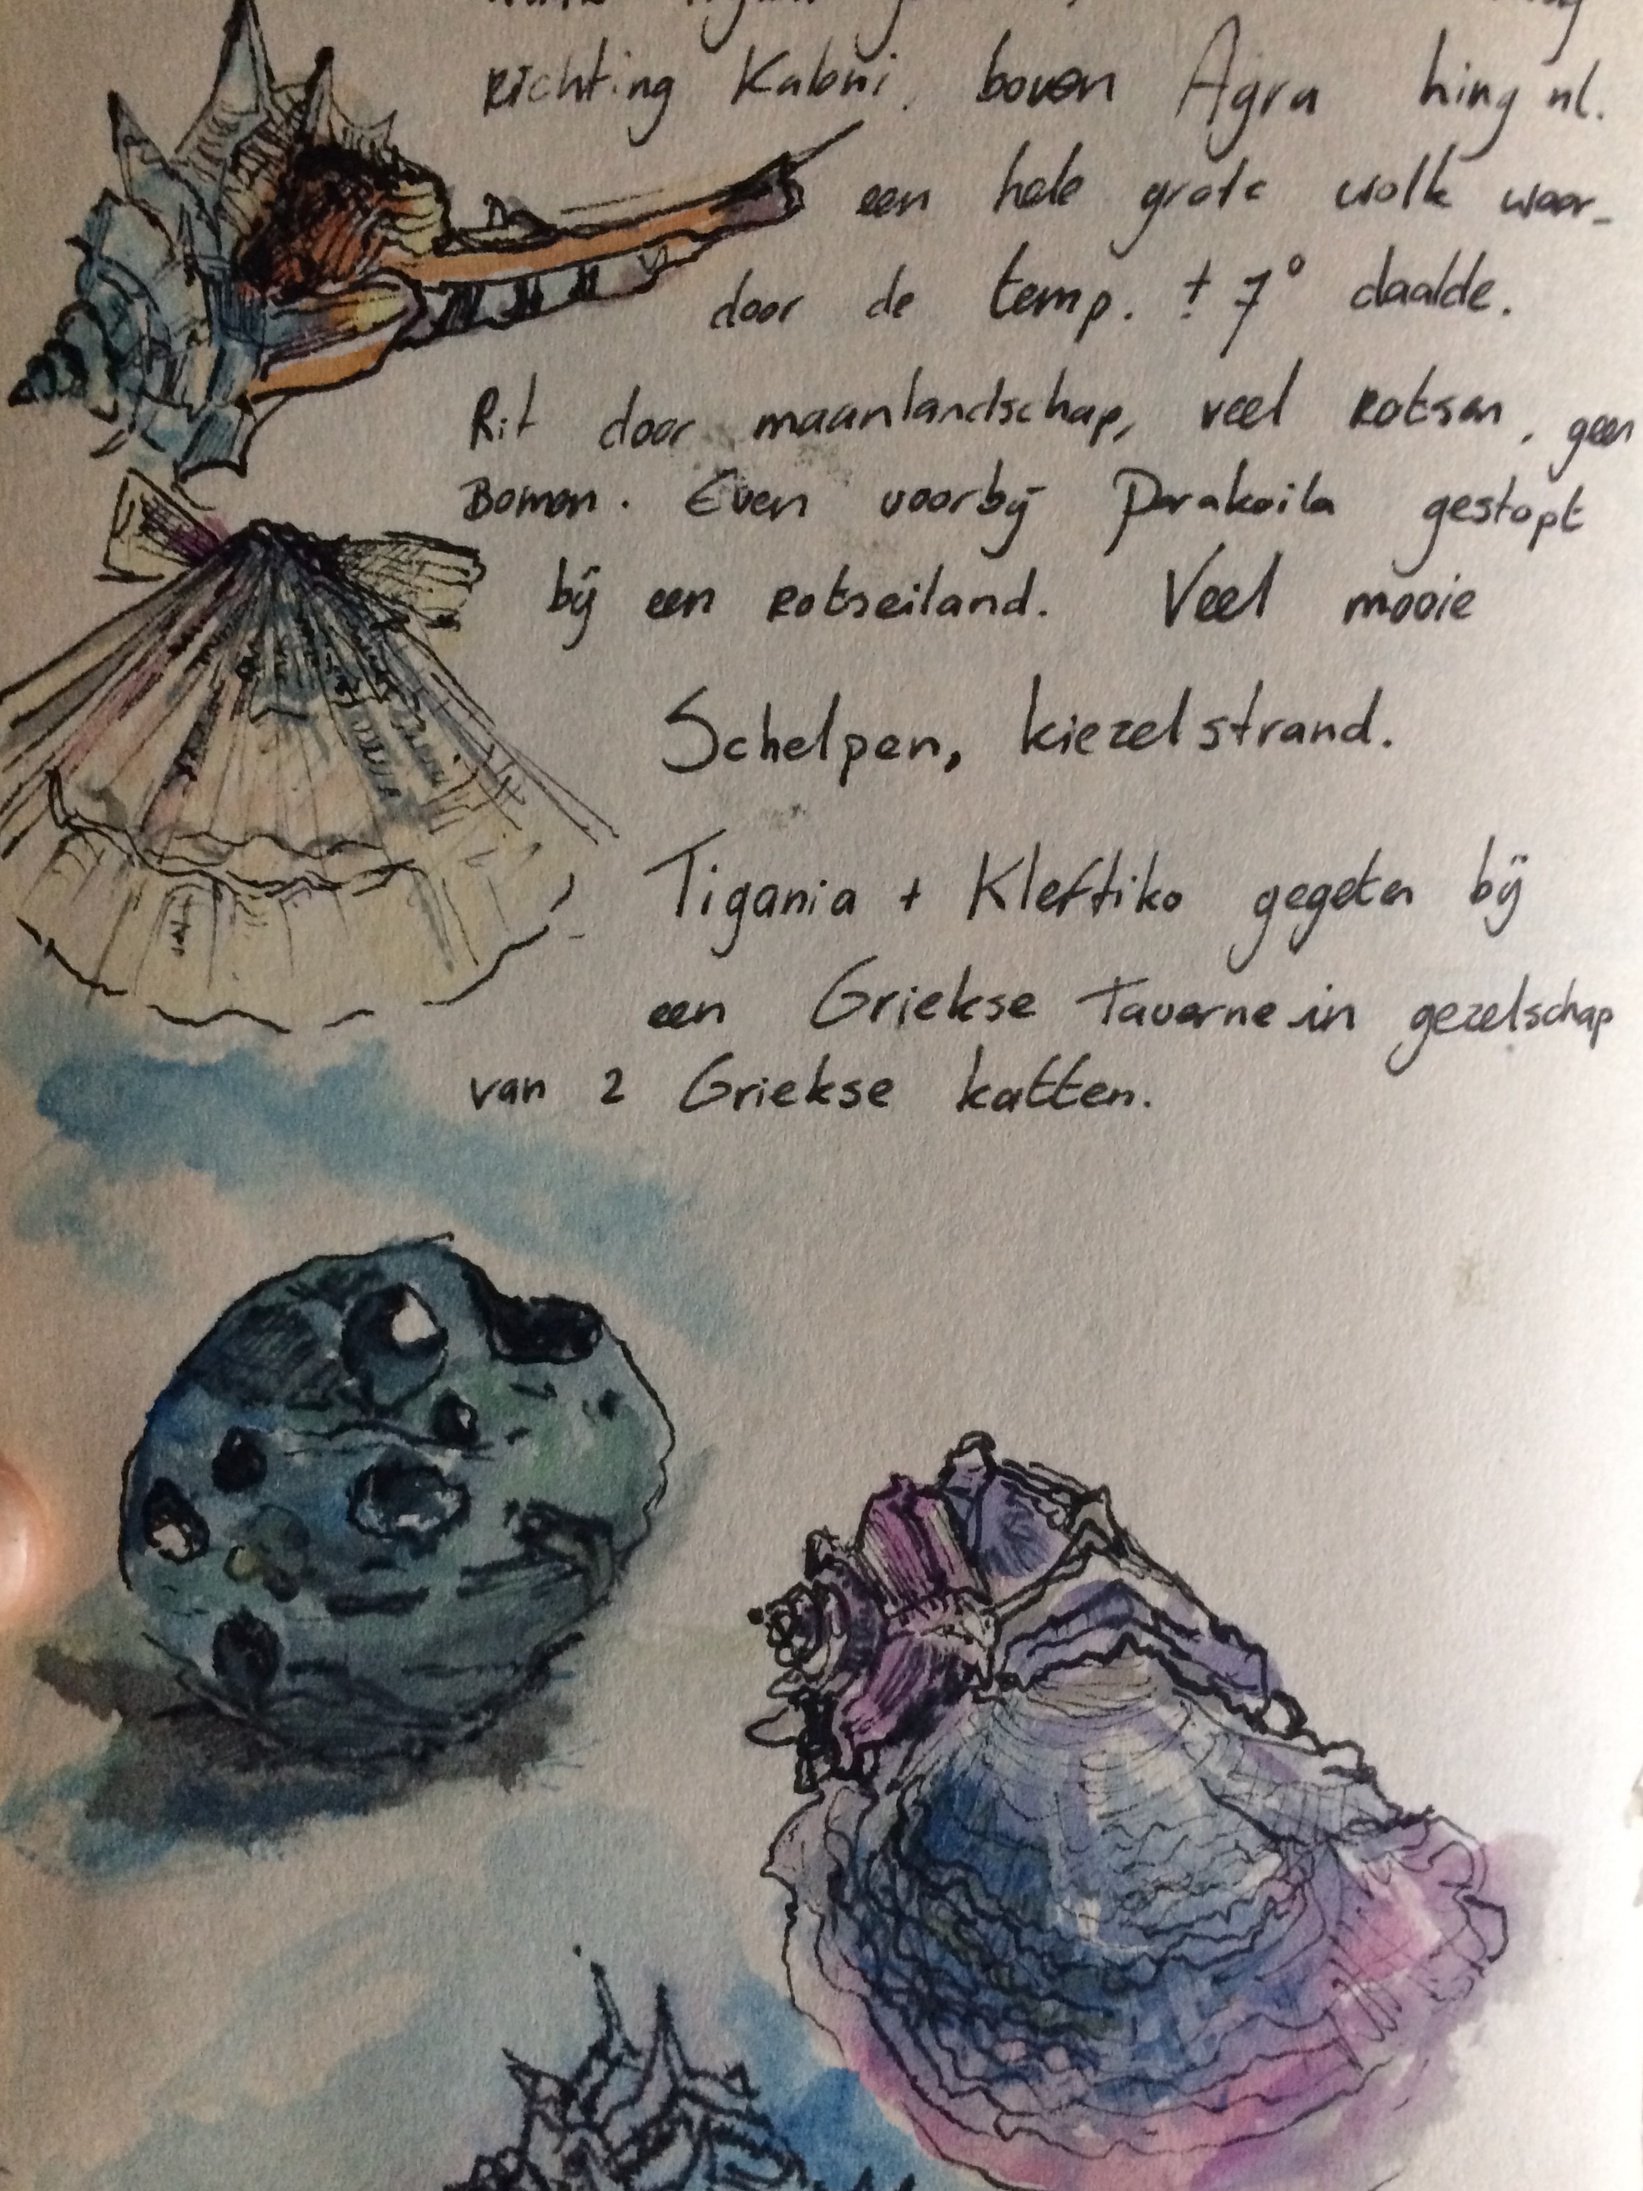 Richting Kaloni, boven Agra hing nl.
een hele grote wolk waar-
door de temp. ± 7° daalde.
Rit door maanlandschap, veel rotsen, geen
Bomen. Even voorbij Parakoila gestopt
bij een rotseiland. Veel mooie
Schelpen, kiezelstrand.
Tigania + Kleftiko gegeten bij
een Griekse Taverne in gezelschap
van 2 Griekse katten.